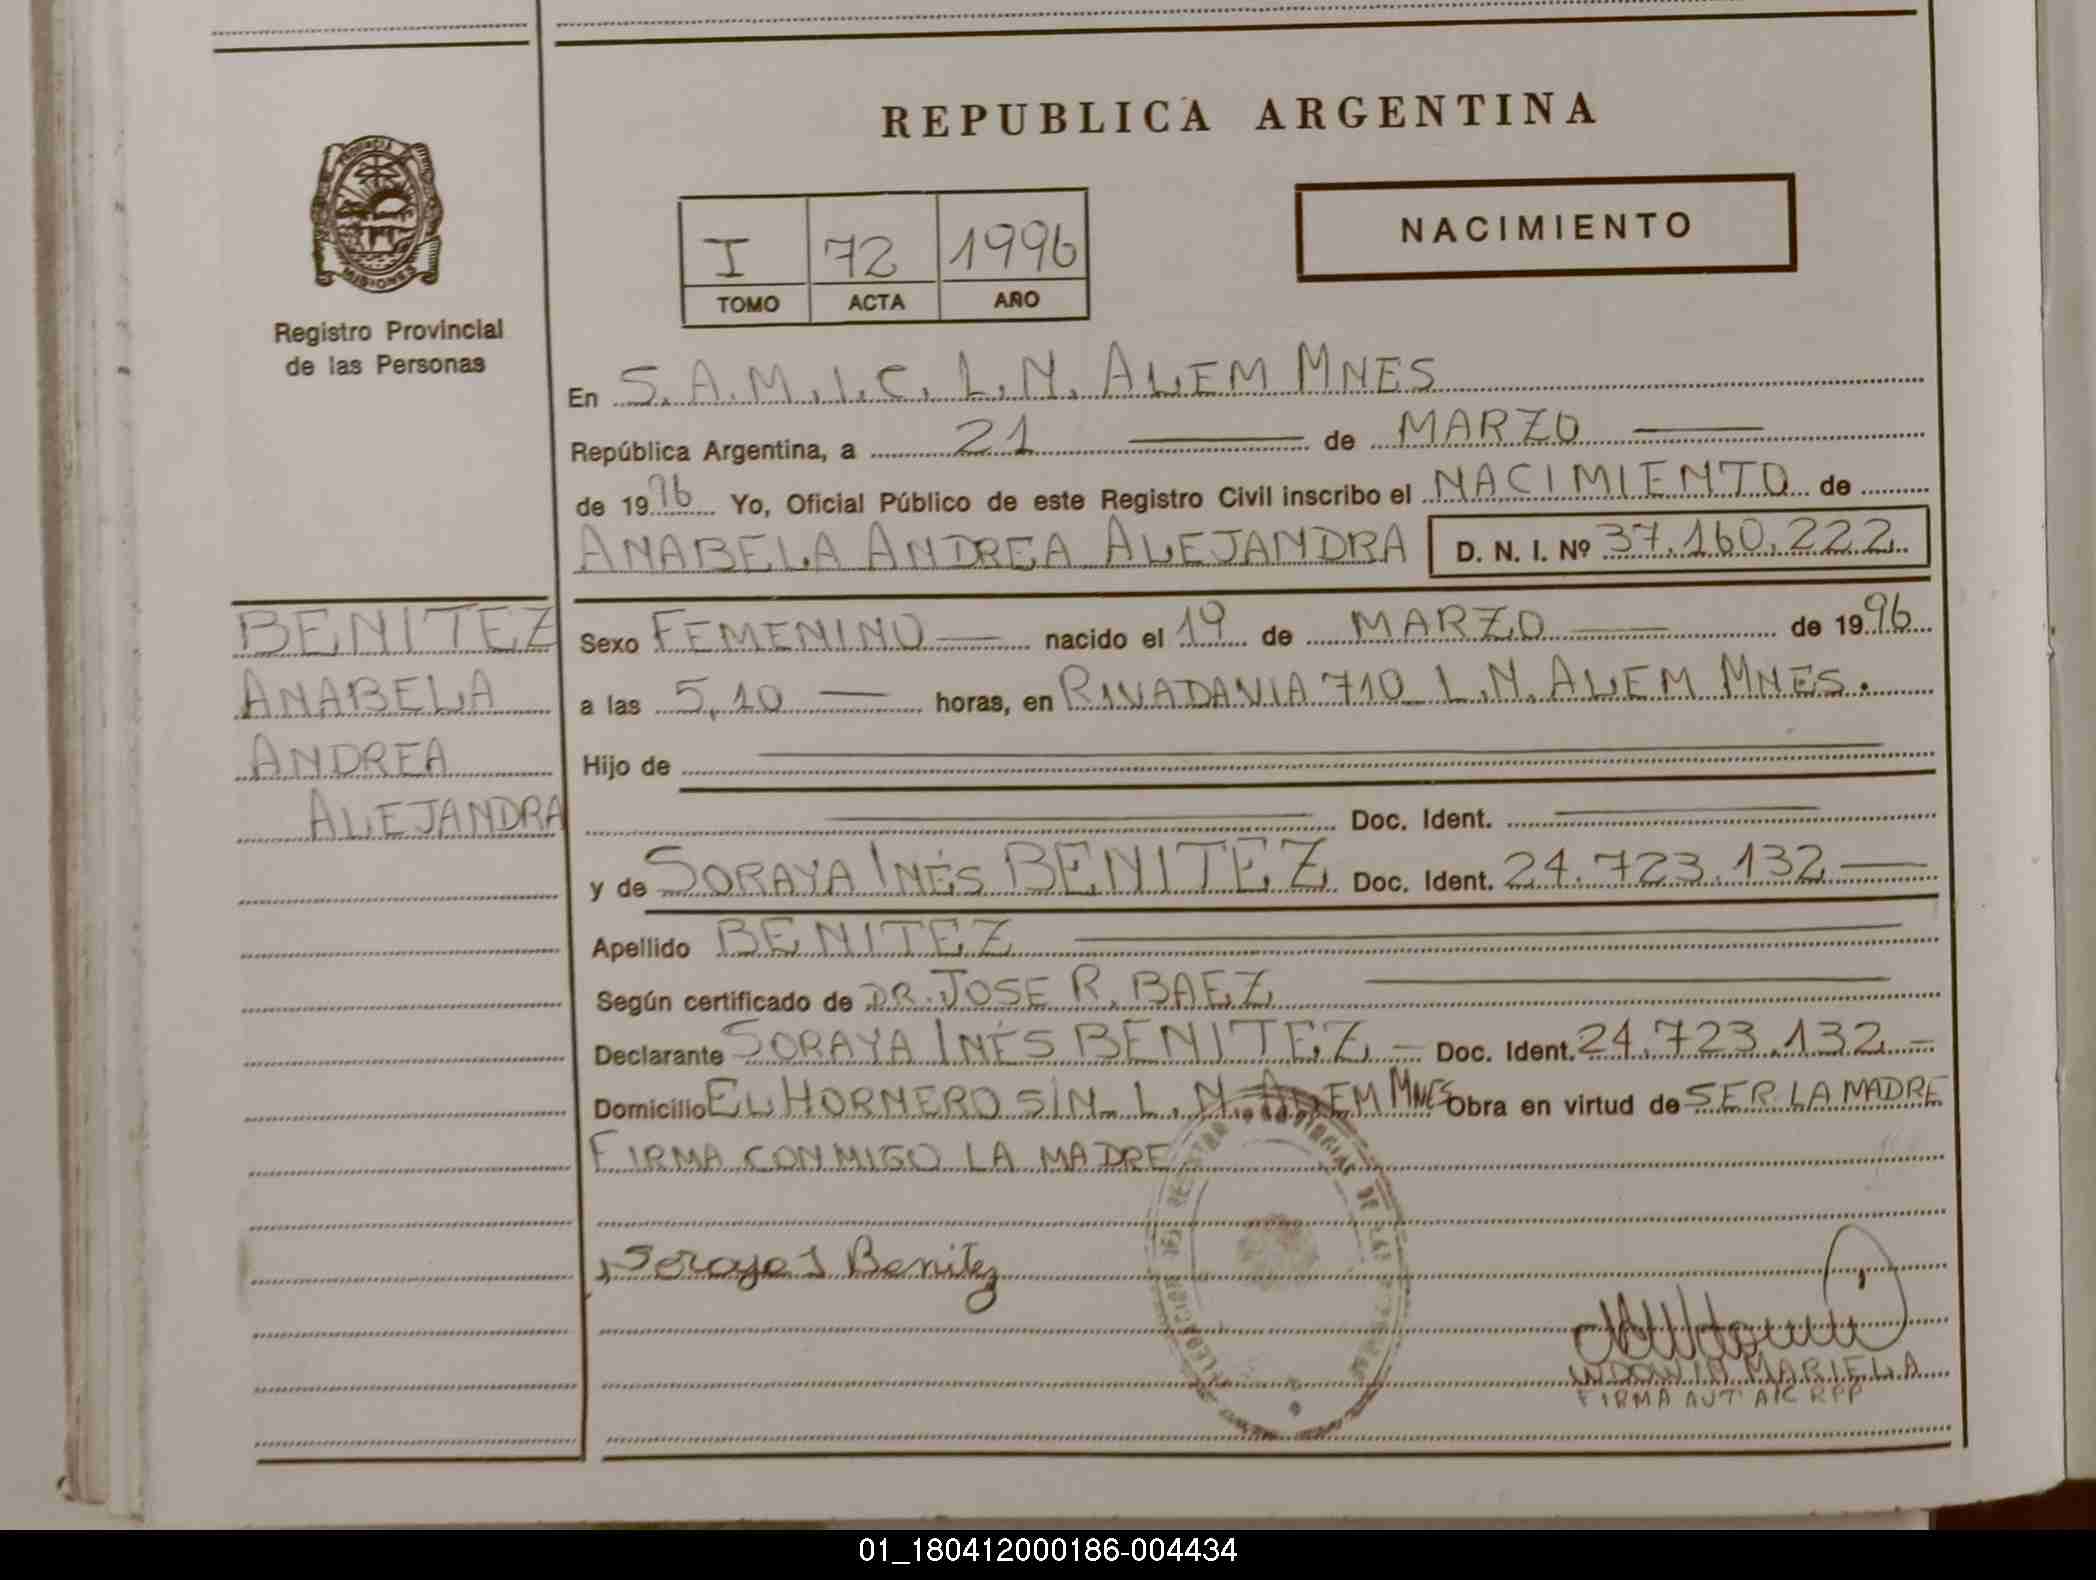 REPUBLICA ARGENTINA
PROVINCIA DE
MISIONES
Registro Provincial
de las Personas
I 72 1996
TOMO ACTA AÑO
NACIMIENTO
En S.A.M.I.C. L.N. ALEM MNES
República Argentina, a 21 de MARZO
de 1996 Yo, Oficial Público de este Registro Civil inscribo el NACIMIENTO de
ANABELA ANDREA ALEJANDRA D. N. I. Nº 37.160.222
BENITEZ
ANABELA
ANDREA
ALEJANDRA
Sexo FEMENINO nacido el 19 de MARZO de 1996
a las 5,10 horas, en RIVADAVIA 710 L.N. ALEM MNES.
Hijo de
Doc. Ident.
y de SORAYA INÉS BENITEZ Doc. Ident. 24.723.132
Apellido BENITEZ
Según certificado de DR. JOSE R. BAEZ
Declarante SORAYA INÉS BENITEZ Doc. Ident. 24.723.132
Domicilio EL HORNERO S/N L.N. ALEM MNES Obra en virtud de SER LA MADRE
FIRMA CONMIGO LA MADRE
Soraya I Benitez
MARIELA
FIRMA AUT A/C RPP
01_180412000186-004434